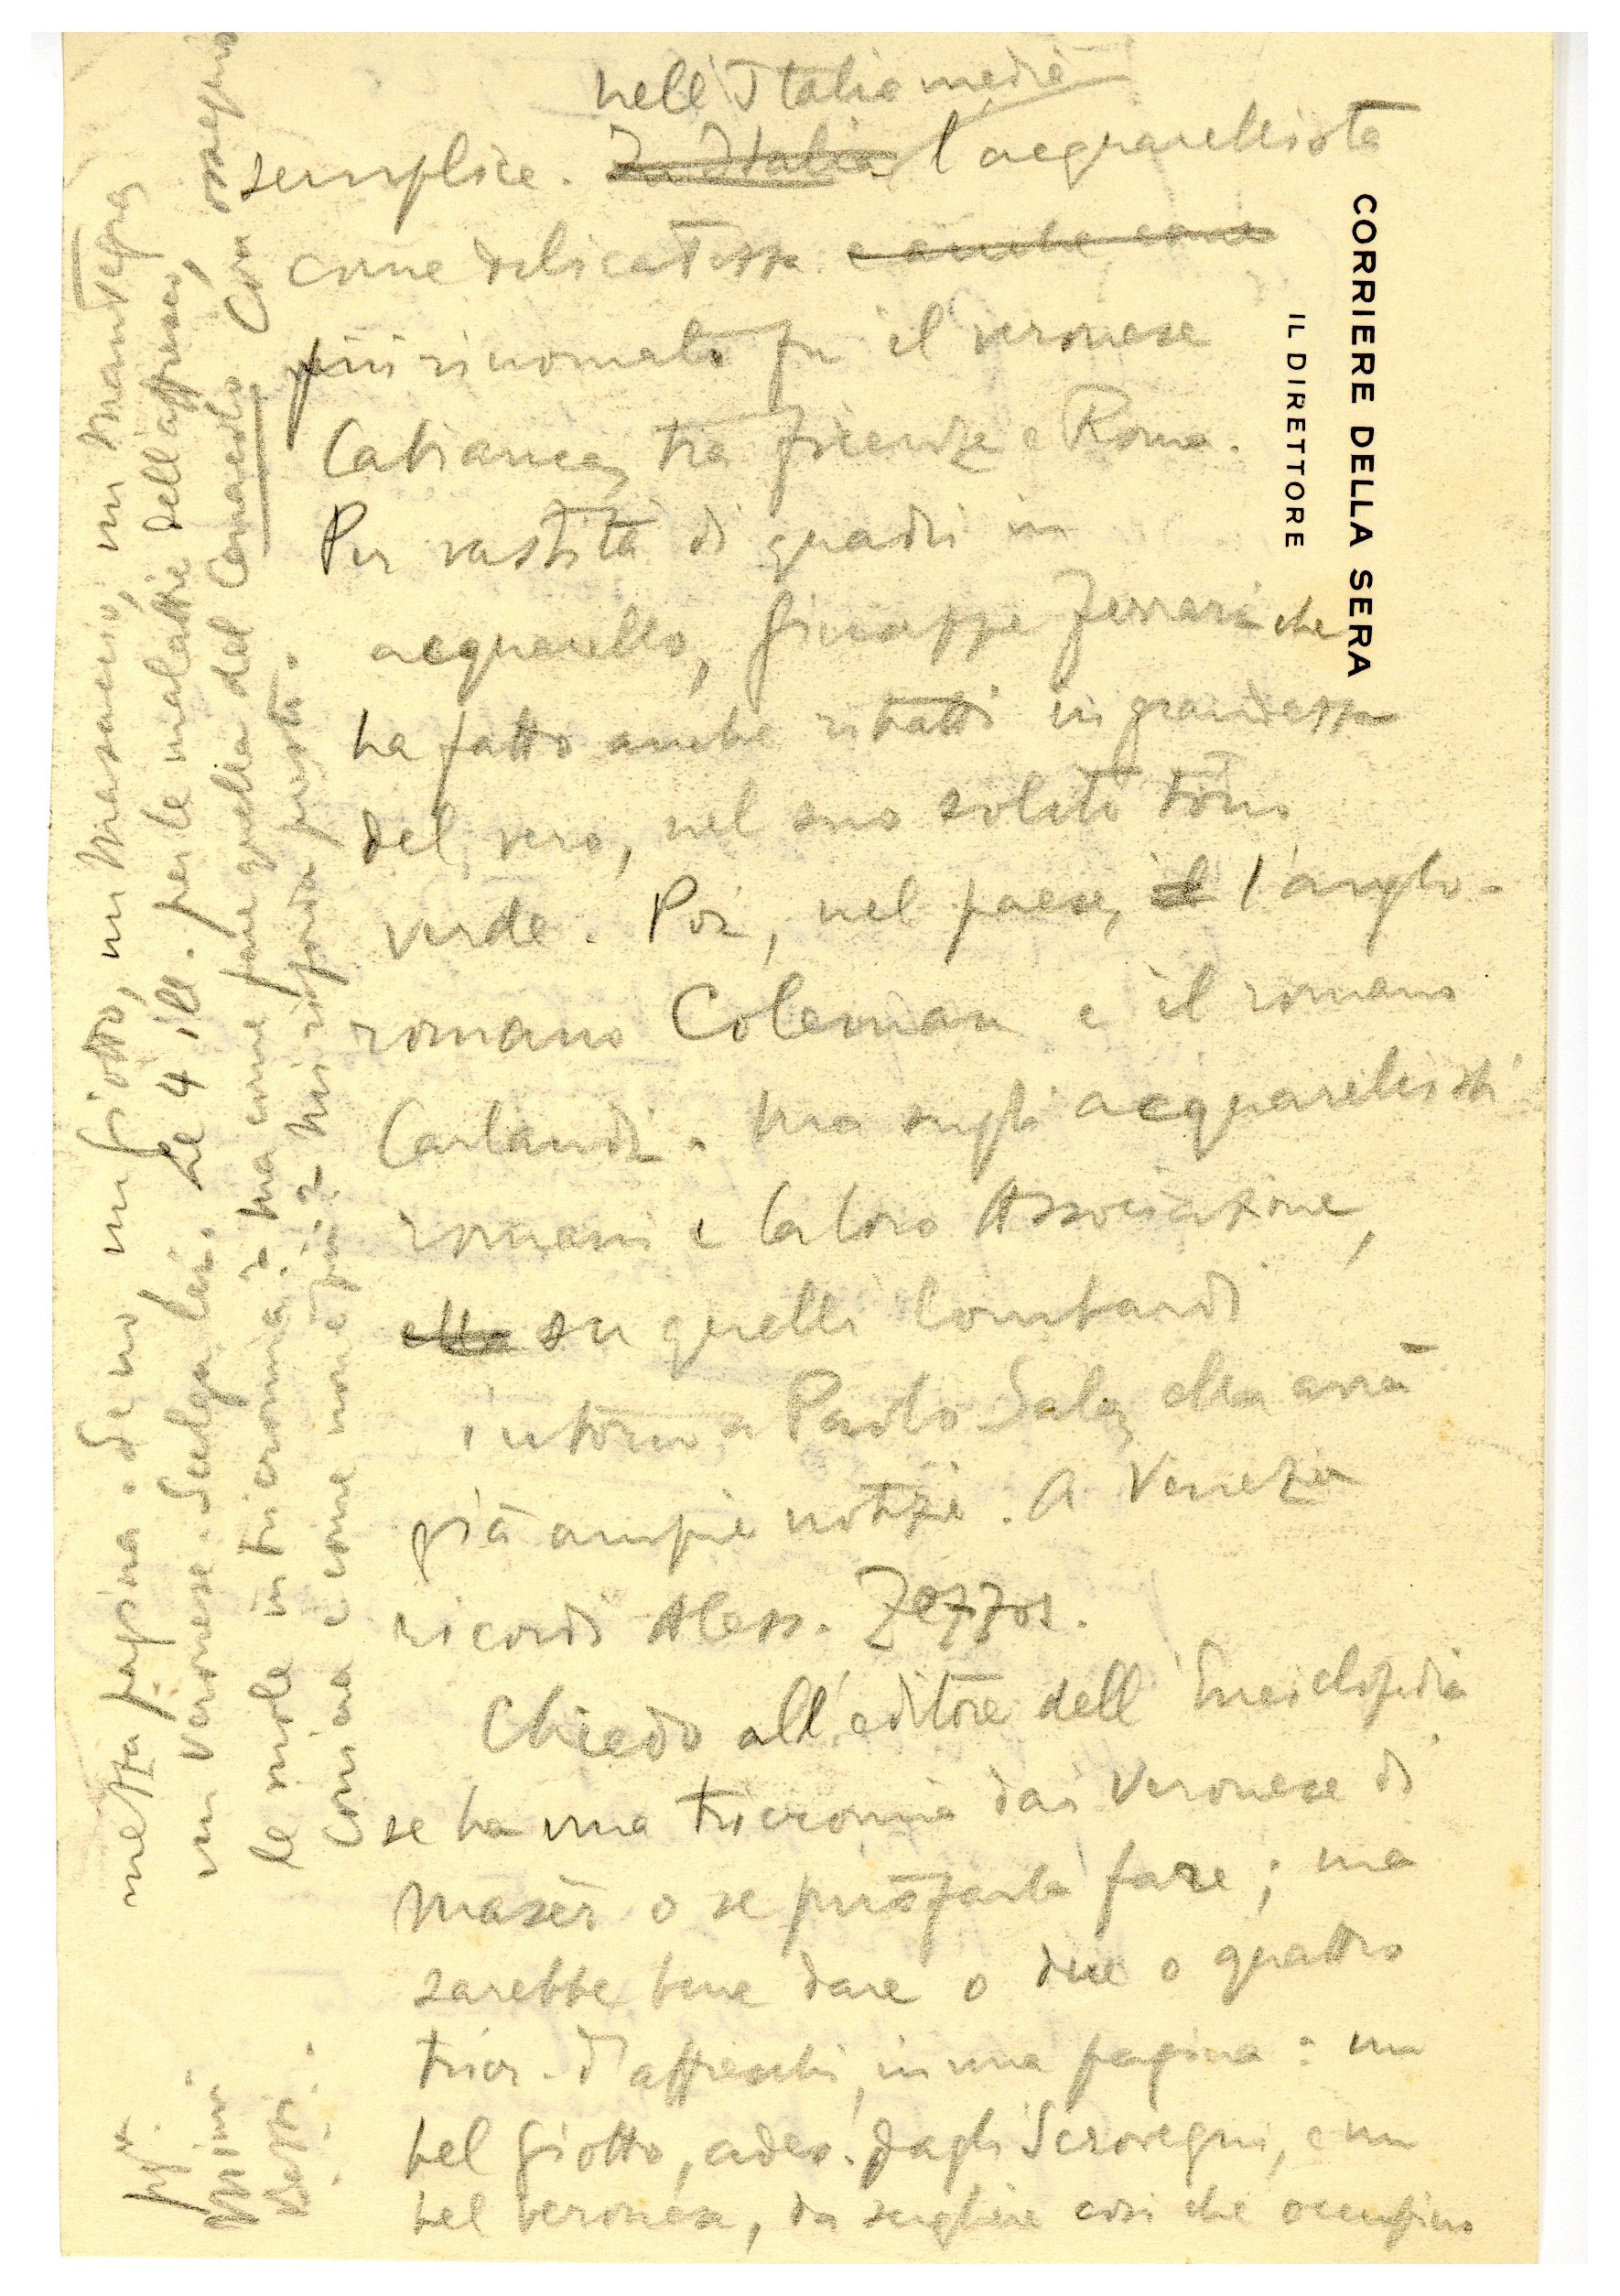 CORRIERE DELLA SERA
IL DIRETTORE
nell'Italia media
semplice. In Italia, l'acquarellista
come delicatezza e anche come
più rinomato fu il veronese
Cabianca, tra Firenze e Roma.
Per vastità di quadri in
acquarello, Giuseppe Ferrari che
ha fatto anche ritratti in grandezza
del vero, nel suo solito tono
verde. Poi, nel paese, il l'anglo-
romano Coleman e il romano
Carlandi. Ma sugli acquarellisti
romani e la loro Associazione,
ella su quelli lombardi
intorno a Paolo Sala, ella avrà
già ampie notizie. A Venezia
ricordi Aless. Zezzos.
Chiedo all'editore dell'Enciclopedia
se ha una tricromia dai Veronese di
Masèr o se può farla fare; ma
sarebbe bene dare o due o quattro
tricr. d'affreschi, in una pagina: un
bel Giotto, ad es. dagli Scrovegni, e un
bel veronese, da scegliere così che occupino
mezza pagina. Se no un Giotto, un Masaccio, un Mantegna
un Veronese. Scelga lei. Le 4 ill. per le malattie dell'affresco,
le vuole in tricromia? Ma come fare quella del Cenacolo
com'era e come non è più? Mi risponda presto.
Con ossequio